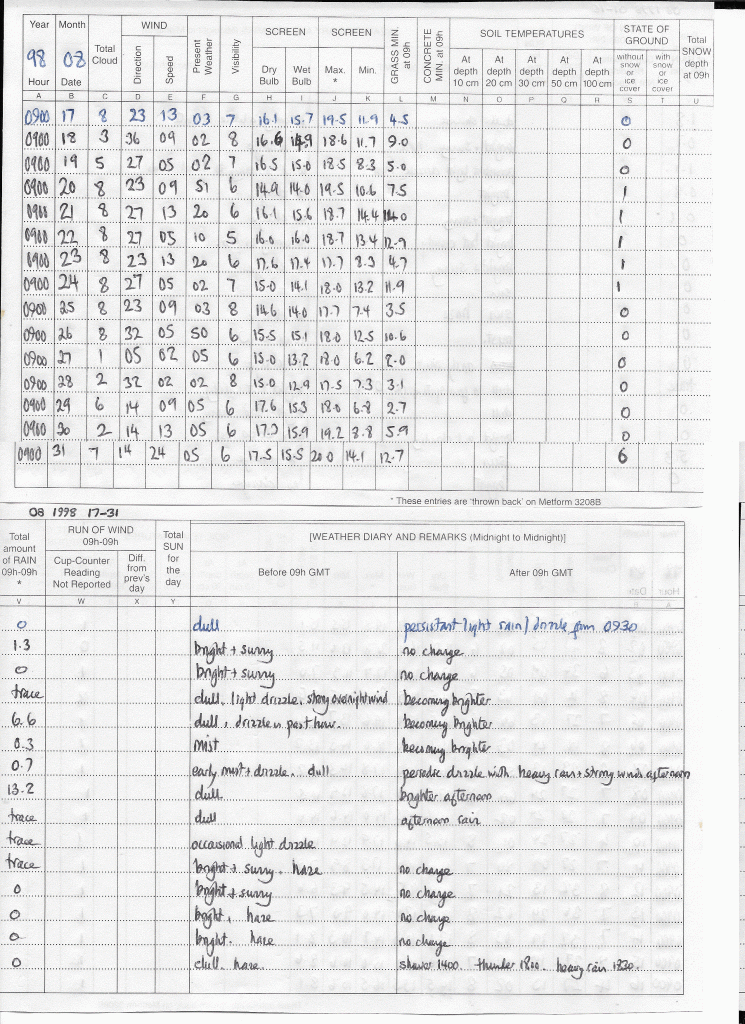 Year Month Total Cloud WIND Present Weather Visibility SCREEN SCREEN GRASS MIN. at 09h CONCRETE MIN at 09h SOIL TEMPERATURES STATE OF GROUND Total SNOW depth at 09h
98 08 Direction Speed Dry Bulb Wet Bulb Max. * Min. At depth 10 cm At depth 20 cm At depth 30 cm At depth 50 cm At depth 100 cm without snow or ice cover with snow or ice cover
Hour Date
A B C D E F G H I J K L M N O P Q R S T U
0900 17 8 23 13 03 7 16.1 15.7 19.5 11.9 4.5 0
0900 18 3 36 09 02 8 16.6 14.9 18.6 11.7 9.0 0
0900 19 5 27 05 02 7 16.5 15.0 18.5 8.3 5.0 0
0900 20 8 23 09 51 6 14.9 14.0 19.5 10.6 7.5 1
0900 21 8 27 13 20 6 16.1 15.6 18.7 14.4 14.0 1
0900 22 8 27 05 10 5 16.0 16.0 18.7 13.4 12.9 1
0900 23 8 23 13 20 6 17.6 17.4 17.7 8.3 4.7 1
0900 24 8 27 05 02 7 15.0 14.1 18.0 13.2 11.9 1
0900 25 8 23 09 03 8 14.6 14.0 17.7 7.4 3.5 0
0900 26 8 32 05 50 6 15.5 15.1 18.0 12.5 10.6 0
0900 27 1 05 02 05 6 15.0 13.2 18.0 6.2 2.0 0
0900 28 2 32 02 02 8 15.0 12.9 17.5 7.3 3.1 0
0900 29 6 14 09 05 6 17.6 15.3 18.0 6.8 2.7 0
0900 30 2 14 13 05 6 15.9 19.2 5.9 0
0900 31 7 14 24 05 6 17.5 15.5 20.0 14.1 12.7 6
* These entries are 'thrown back' on Metform 3208B
08 1998 17-31
Total amount of RAIN 09h-09h * RUN OF WIND 09h-09h Total SUN for the day [WEATHER DIARY AND REMARKS (Midnight to Midnight)]
Cup-Counter Reading Not Reported Diff. from prev's day Before 09h GMT After 09h GMT
V W X Y
0 dull persistant light rain/drizzle from 0930
1.3 bright + sunny no change
0 bright + sunny no change
trace dull, light drizzle, strong overnight wind becoming brighter
6.6 dull, drizzle in past hour. becoming brighter
0.3 mist becoming brighter
0.7 early mist + drizzle. dull periodic drizzle with heavy rain + strong winds afternoon
13.2 dull brighter afternoon
trace dull afternoon rain
trace occassional light drizzle
trace bright + sunny. haze no change
0 bright + sunny no change
0 bright, haze no change
0 bright. haze no change
0 dull. haze. shower 1400. thunder 1800. heavy rain 1830.